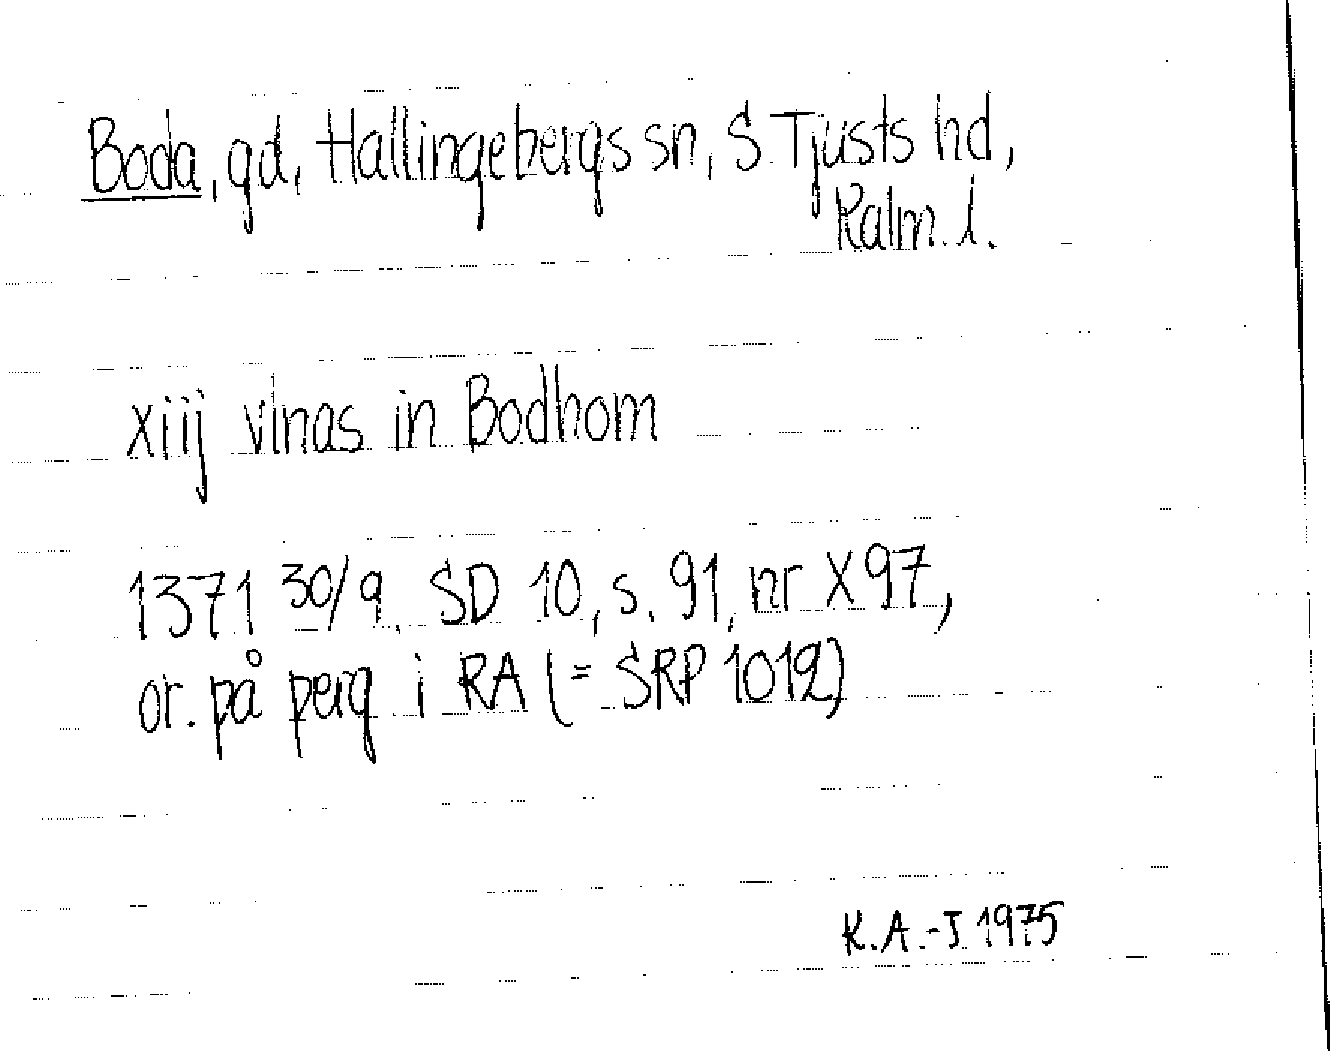 Boda, gd, Hallingebergs sn, S Tjusts hd,
Kalm. l.
xiij vlnas in Bodhom
1371 30/9, SD 10, s. 91, nr X 97,
or. på perg i RA (= SRP 1012)
K.A.-J. 1975